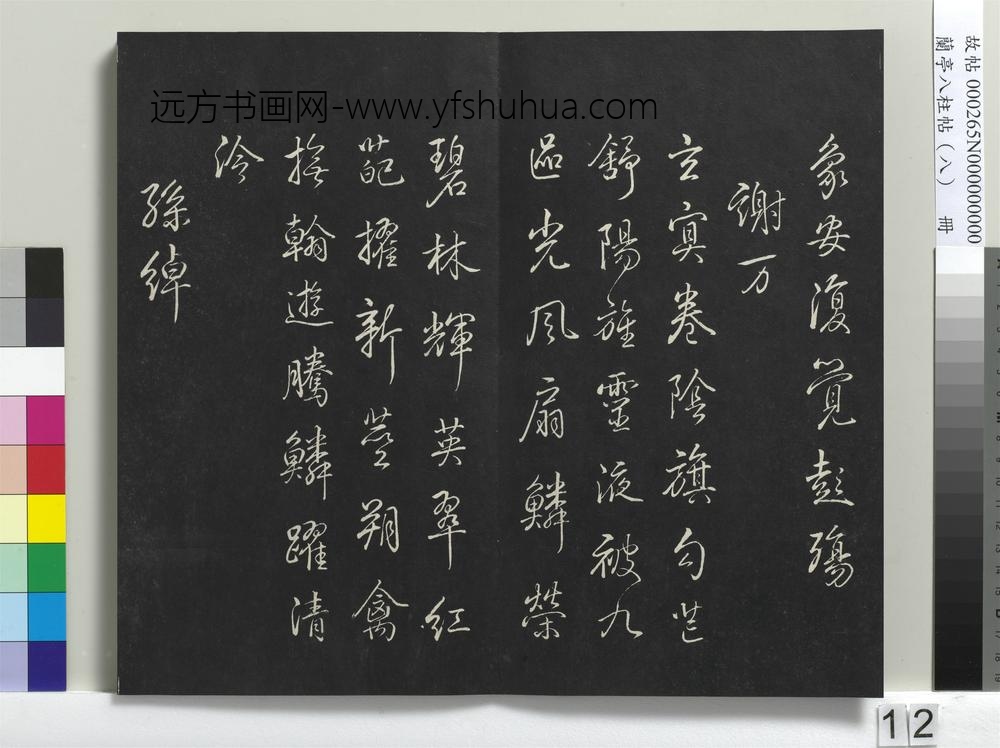 远方书画网-www.yfshuhua.com
象安復覺彭殤
謝万
玄冥卷陰旗勾芒
舒陽旌靈液被九
區光風扇鱗榮
碧林輝英翠紅
葩擢新莖翔禽
撫翰遊騰鱗躍清
泠
孫綽
故帖 000265N000000000
蘭亭八柱帖（八） 冊
12